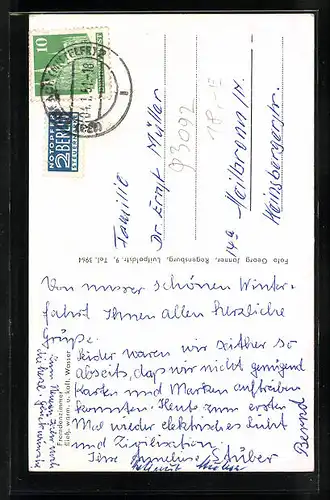 10
NOTOPFER
2 BERLIN
STEUERMARKE
Familie
Dr. Ernst Müller
14a Heilbronn/N.
Weinsbergerstr.
93092
18.-E
Foto Georg Janner, Regensburg, Luitpoldstr. 9, Tel. 3961
Fremdenzimmer
fließ. warm. u. kalt. Wasser
Von unserer schönen Winter-
fahrt Ihnen allen herzliche
Grüße.
Leider waren wir seither so
abseits, daß wir nicht genügend
Karten und Marken auftreiben
konnten. Heute zum ersten
Mal wieder elektrisches Licht
und Zivilisation.
Ihre Annelene Stüber
Bernd
zum Neuen Jahr noch